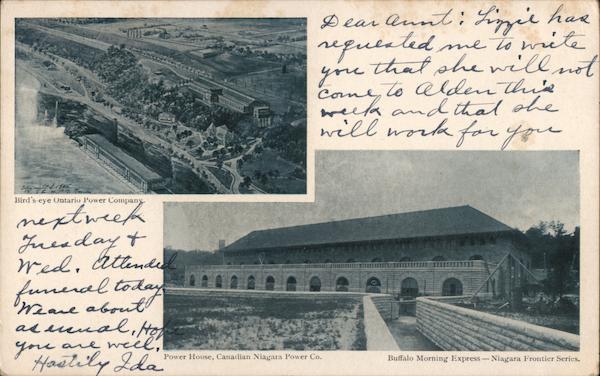 Dear Aunt: Lizzie has
requested me to write
you that she will not
come to Alden this
week and that she
will work for you
Bird's-eye Ontario Power Company.
next week
Tuesday &
Wed. Attended
funeral today
We are about
as usual, Hope
you are well.
Hastily Ida
Power House, Canadian Niagara Power Co.
Buffalo Morning Express—Niagara Frontier Series.